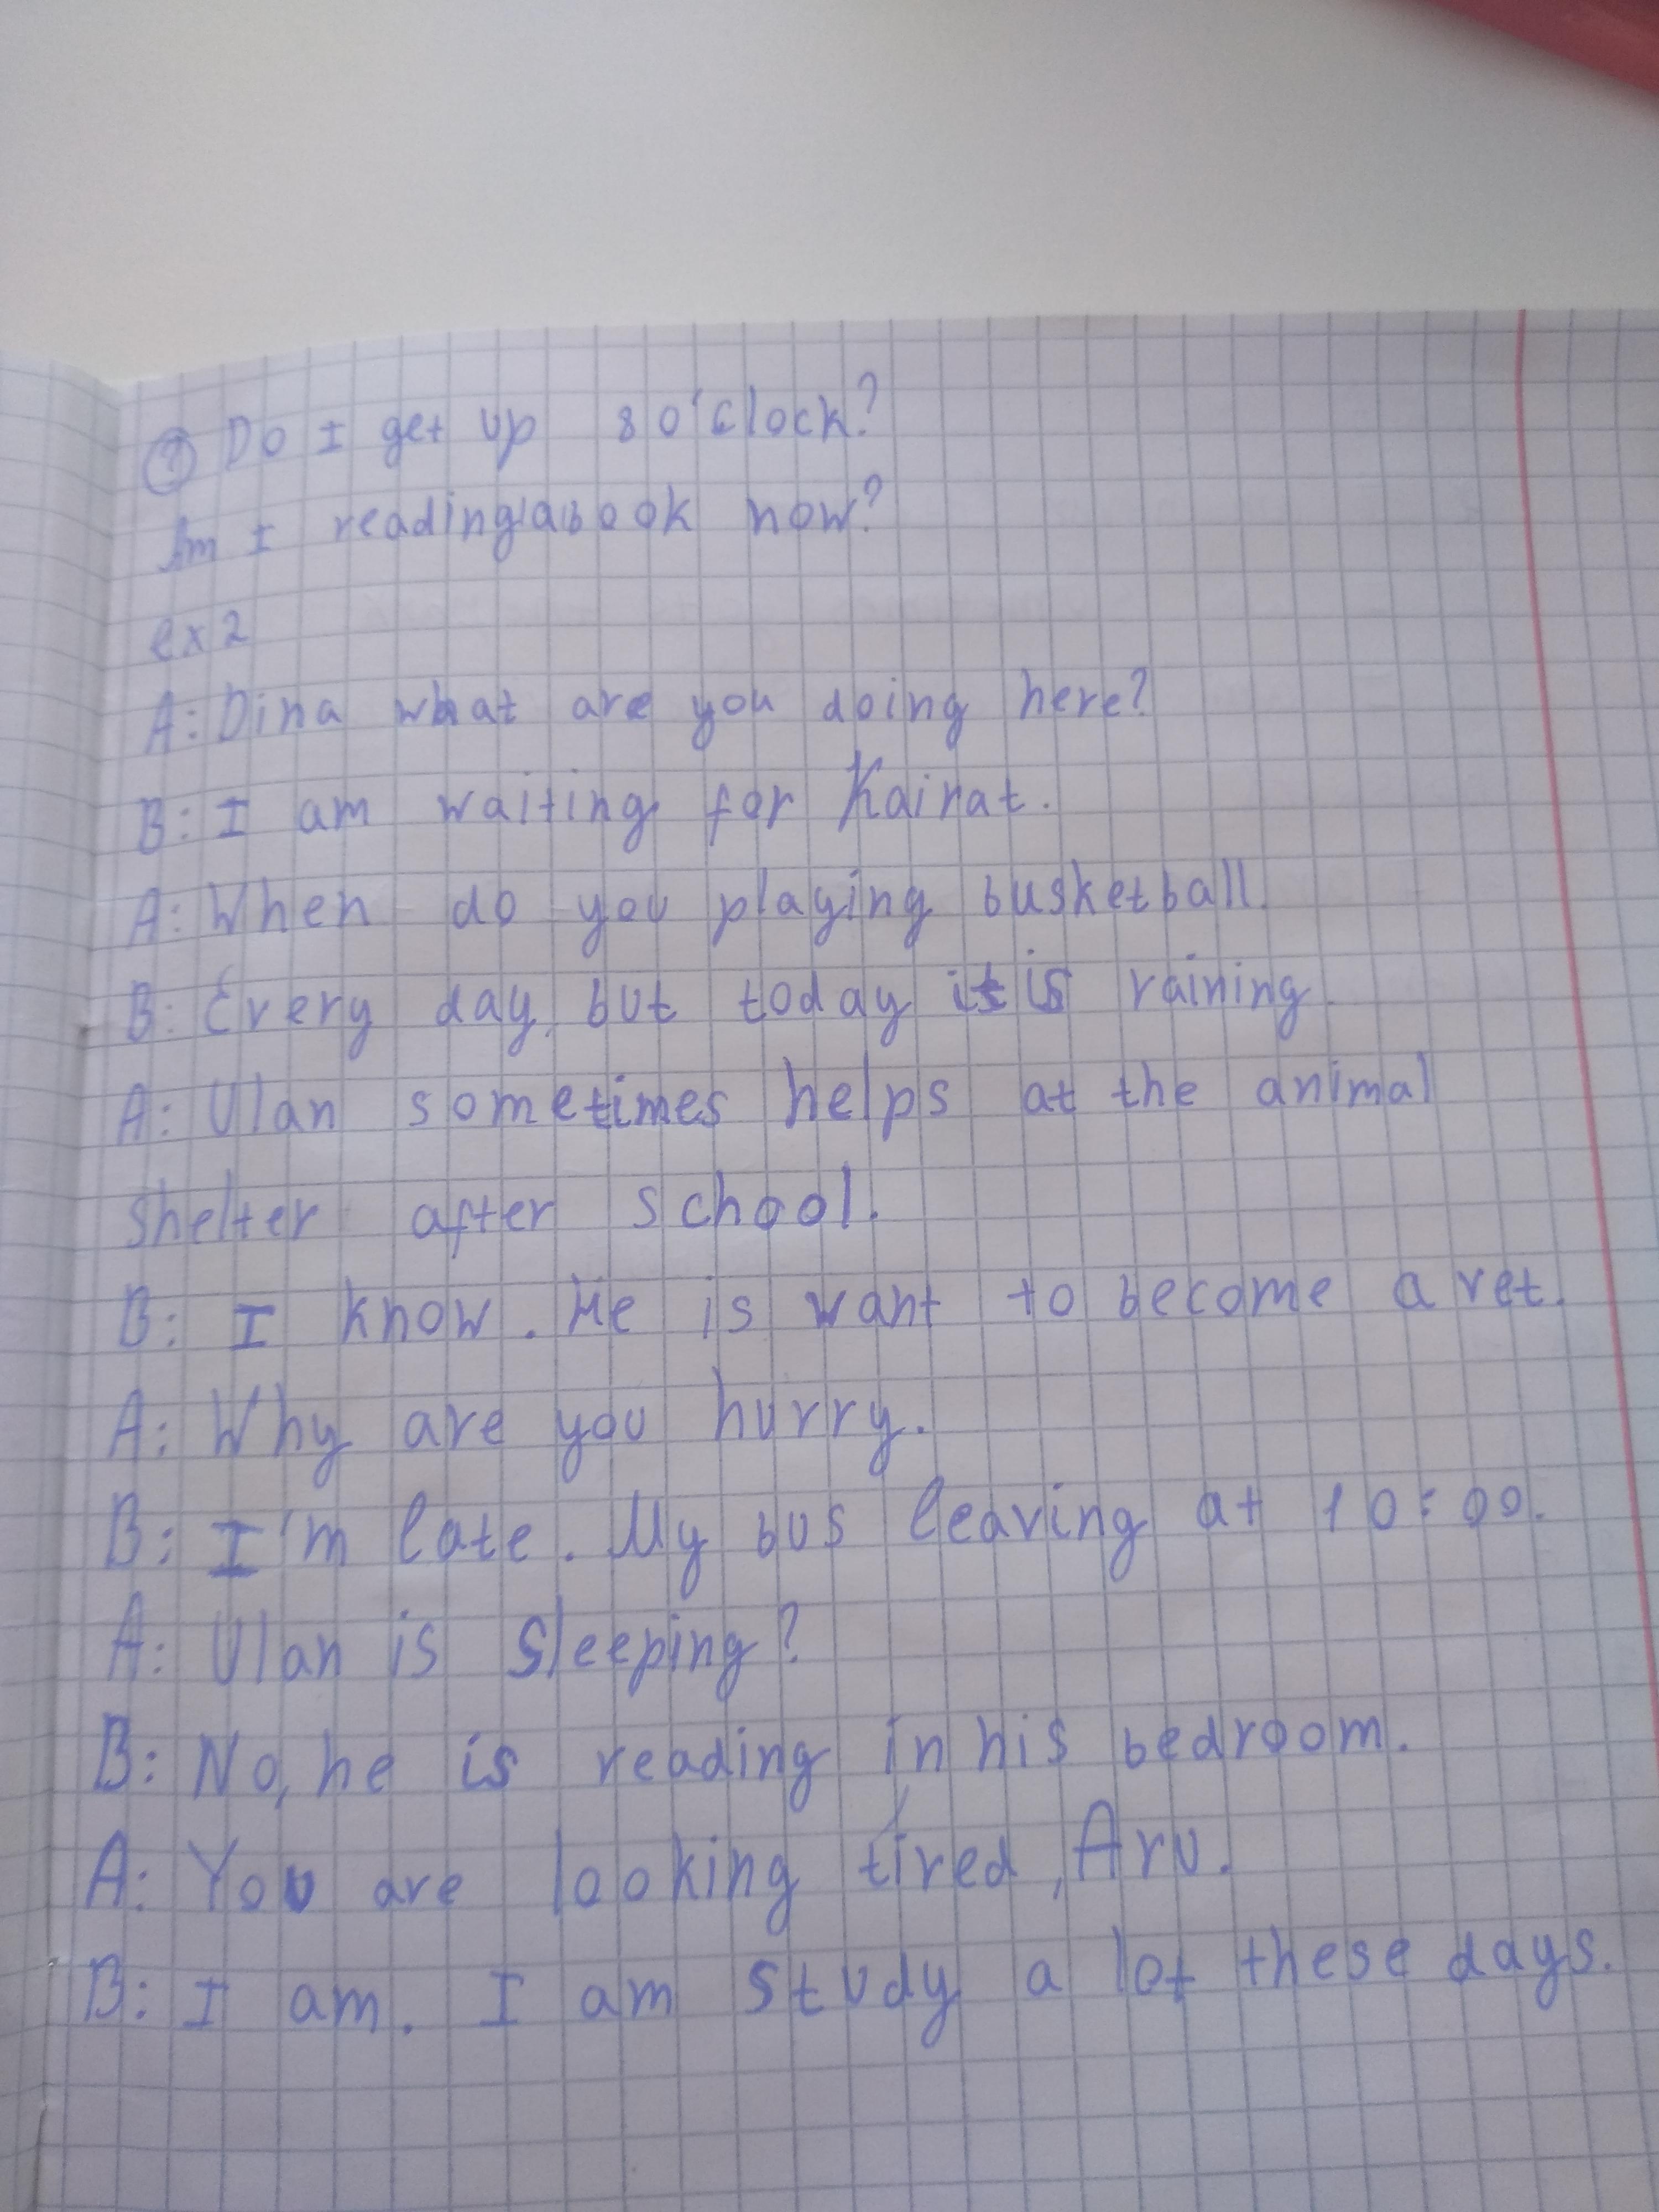 ? Do I get up 8 o'clock?
Am I reading a book now?
ex 2
A: Dina what are you doing here?
B: I am waiting for Kairat.
A: When do you playing busketball.
B: Every day, but today it is raining.
A: Ulan sometimes helps at the animal
shelter after school.
B: I know. He is want to become a vet.
A: Why are you hurry.
B: I'm late. My bus leaving at 10:00.
A: Ulan is sleeping?
B: No, he is reading in his bedroom.
A: You are looking tired, Aru.
B: I am. I am study a lot these days.